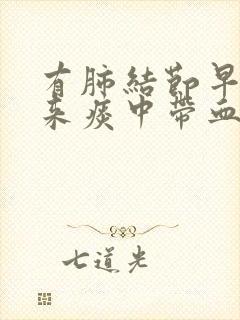 有肺結節早
来痰中帶血
七道光